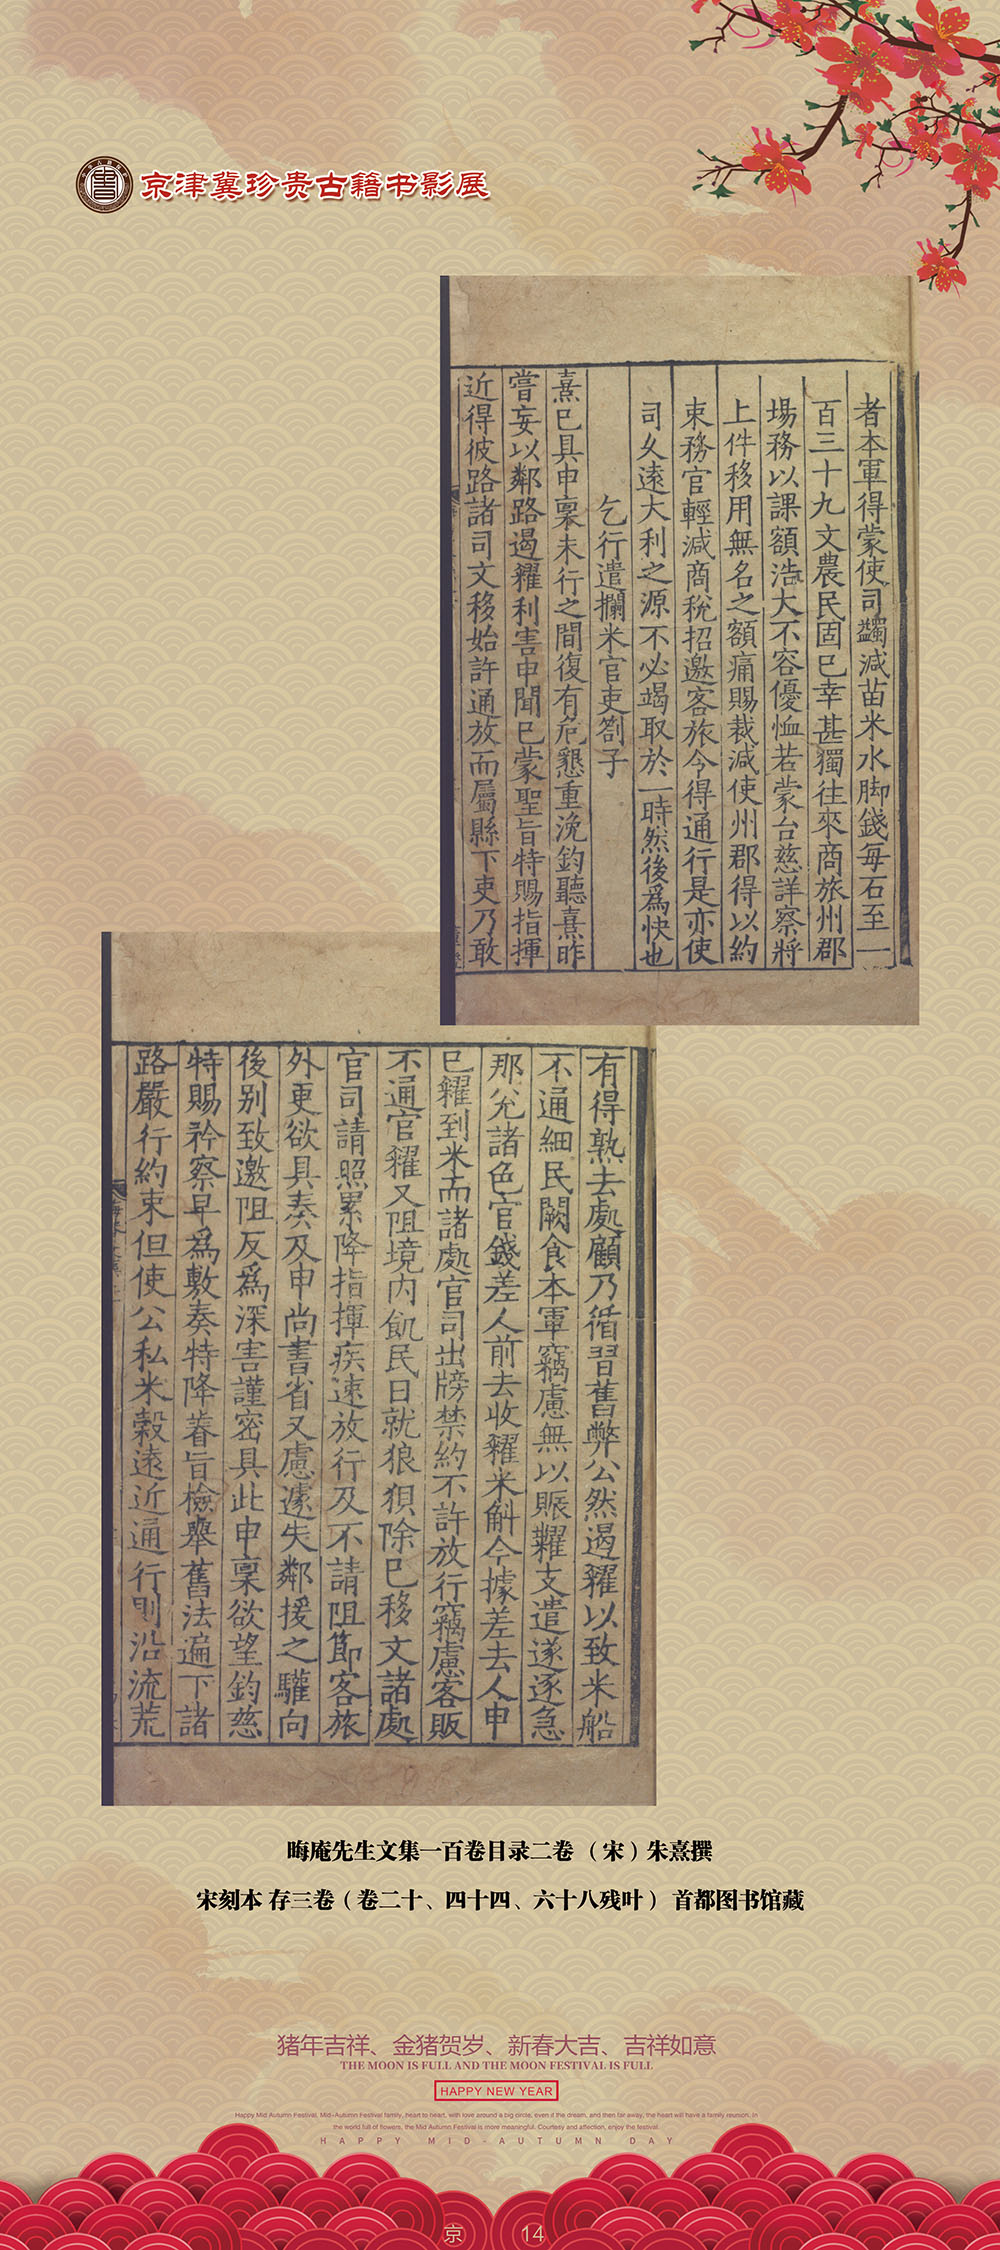 京津冀珍贵古籍书影展
者本軍得蒙使司蠲減苗米水脚錢每石至一
百三十九文農民固已幸甚獨往來商旅州郡
場務以課額浩大不容優恤若蒙台慈詳察將
上件移用無名之額痛賜裁減使州郡得以約
束務官輕減商稅招邀客旅今得通行是亦使
司久遠大利之源不必竭取於一時然後爲快也
乞行遣攔米官吏劄子
熹已具申稟未行之間復有危懇重浼鈞聽熹昨
嘗妄以鄰路遏糴利害申聞已蒙聖旨特賜指揮
近得彼路諸司文移始許通放而屬縣下吏乃敢
有得熟去處顧乃循習舊弊公然遏糴以致米船
不通細民闕食本軍竊慮無以賑糶支遣遂逐急
那兊諸色官錢差人前去收糴米斛今據差去人申
已糴到米而諸處官司出牓禁約不許放行竊慮客販
不通官糴又阻境内飢民日就狼狽除已移文諸處
官司請照累降指揮疾速放行及不請阻節客旅
外更欲具奏及申尚書省又慮遽失鄰援之驩向
後别致邀阻反爲深害謹密具此申稟欲望鈞慈
特賜衿察早爲敷奏特降睿旨檢舉舊法遍下諸
路嚴行約束但使公私米糓遠近通行則沿流荒
晦庵先生文集一百卷目录二卷 （宋）朱熹撰
宋刻本 存三卷（卷二十、四十四、六十八残叶） 首都图书馆藏
猪年吉祥、金猪贺岁、新春大吉、吉祥如意
THE MOON IS FULL AND THE MOON FESTIVAL IS FULL
HAPPY NEW YEAR
Happy Mid Autumn Festival, Mid-Autumn Festival family, heart to heart, with love around a big circle, even if the dream, and then far away, the heart will have a family reunion. In
the world full of flowers, the Mid Autumn Festival is more meaningful. Courtesy and affection, enjoy the festival.
HAPPY MID-AUTUMN DAY
京 14